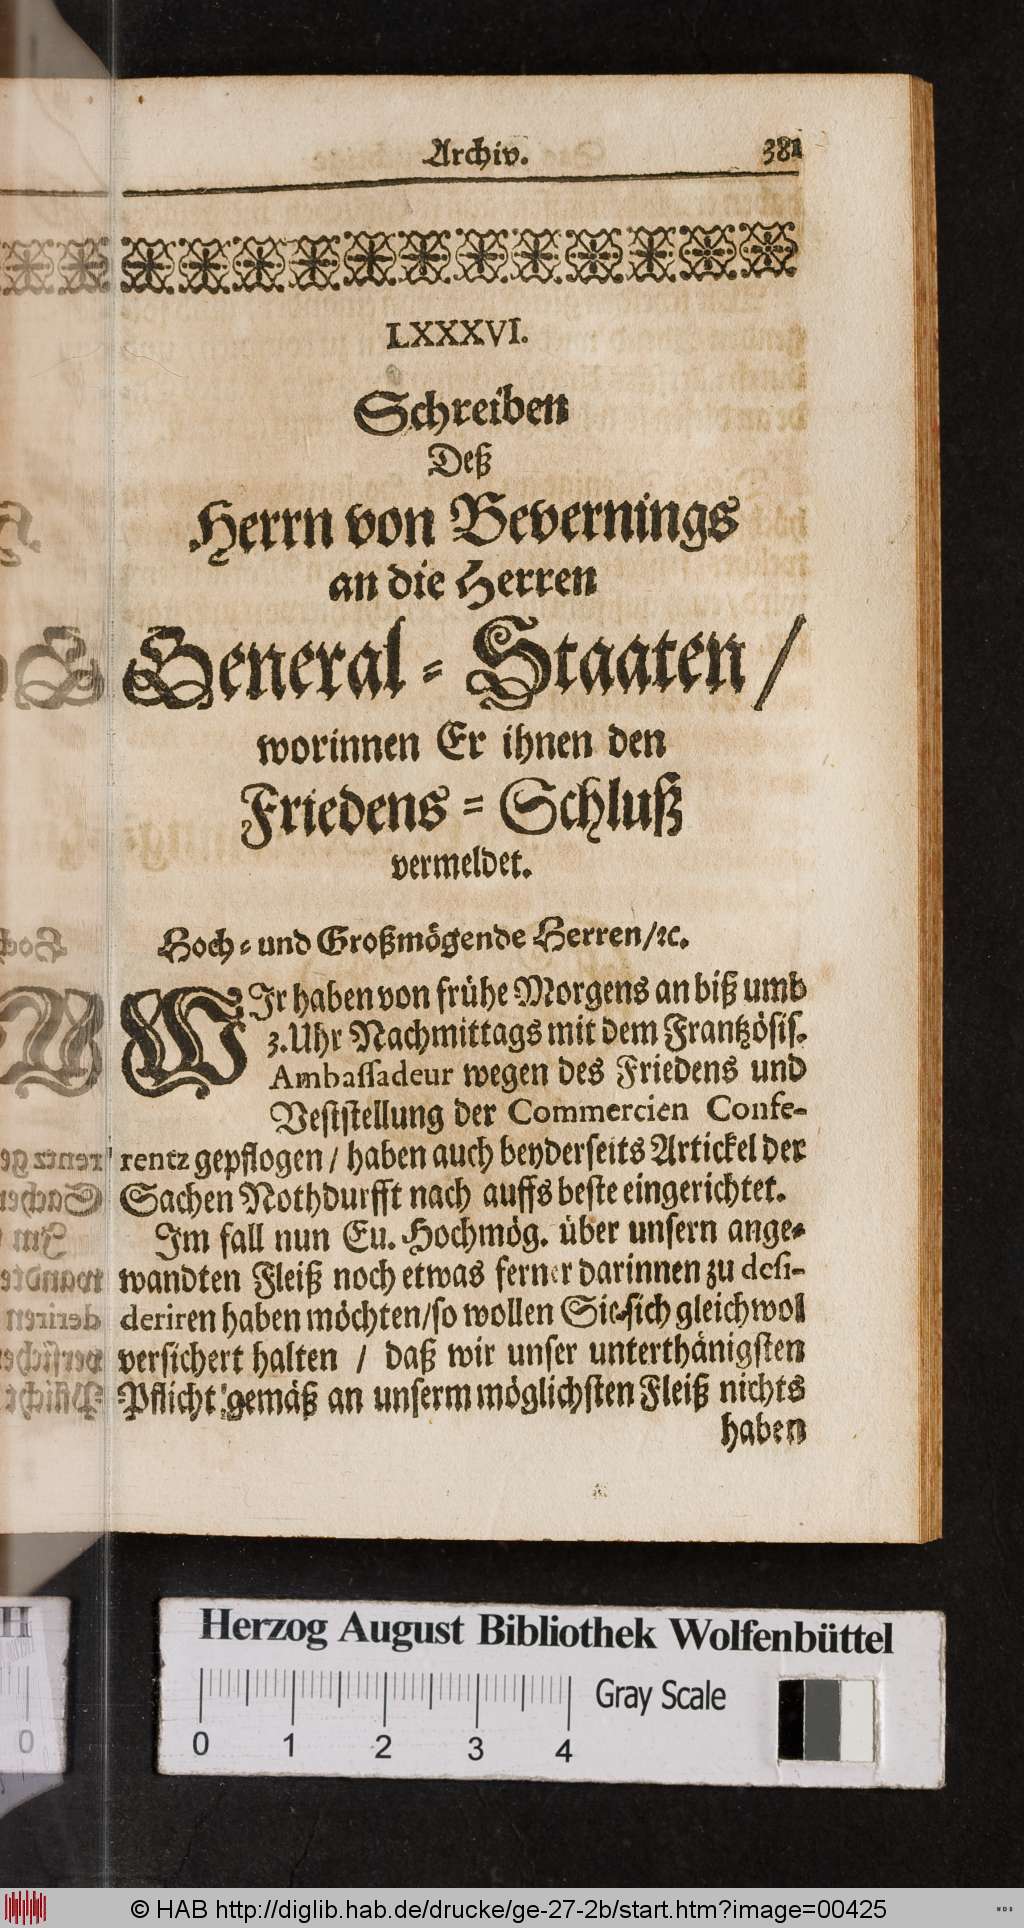 Archiv. 381
LXXXVI.
Schreiben
Deß
Herrn von Bevernings
an die Herren
General-Staaten /
worinnen Er ihnen den
Friedens-Schluß
vermeldet.
Hoch- und Großmögende Herren/ꝛc.
WIr haben von frühe Morgens an biß umb
3. Uhr Nachmittags mit dem Frantzösis.
Ambassadeur wegen des Friedens und
Veststellung der Commercien Confe-
rentz gepflogen / haben auch beyderseits Artickel der
Sachen Nothdurfft nach auffs beste eingerichtet.
Im fall nun Eu. Hochmög. über unsern ange-
wandten Fleiß noch etwas ferner darinnen zu desi-
deriren haben möchten/so wollen Sie sich gleichwol
versichert halten / daß wir unser unterthänigsten
Pflicht gemäß an unserm möglichsten Fleiß nichts
haben
Herzog August Bibliothek Wolfenbüttel
Gray Scale
0 1 2 3 4
© HAB http://diglib.hab.de/drucke/ge-27-2b/start.htm?image=00425